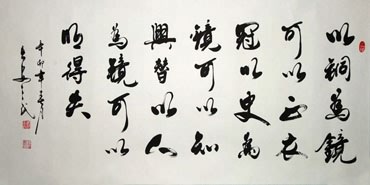 以銅為鏡
可以正衣
冠以史為
鏡可以知
興替以人
為鏡可以
明得失
辛卯年